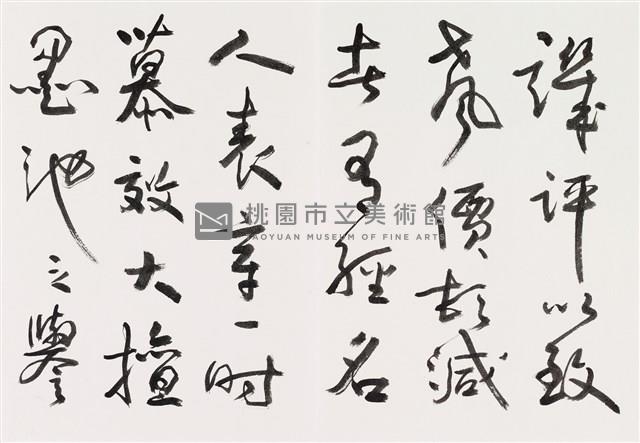 譏評以致
聲價頓減
者有經名
人表章一時
慕效大擅
墨池之譽
桃園市立美術館
TAOYUAN MUSEUM OF FINE ARTS